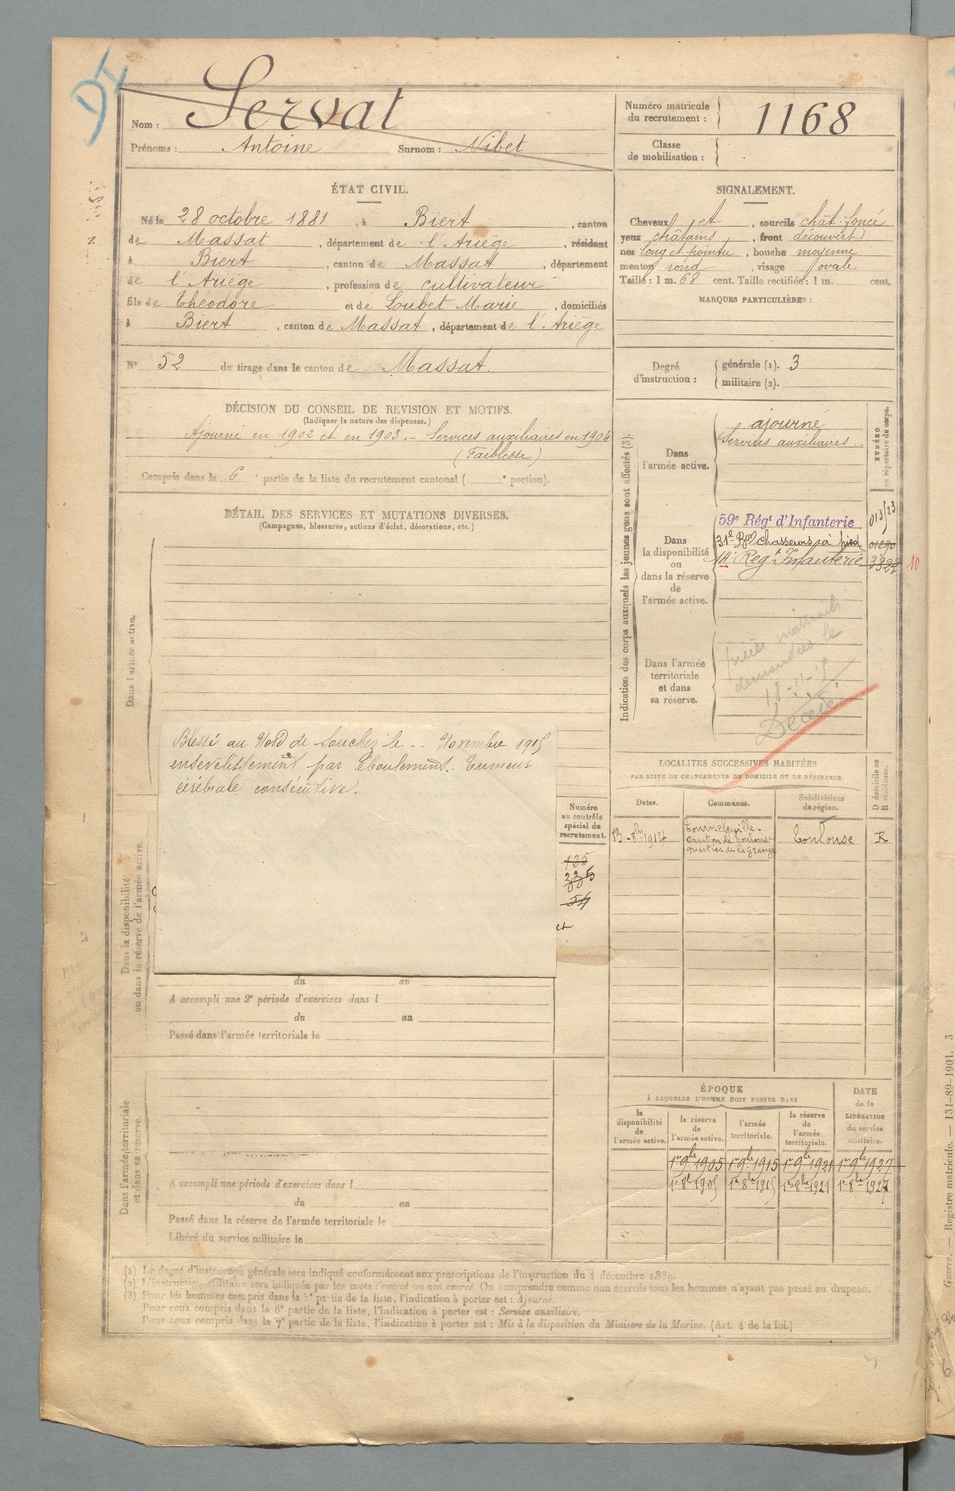 DI
Nom : Servat
Prénoms : Antoine Surnom : Nibet
Numéro matricule
du recrutement : 1168
Classe
de mobilisation :
ÉTAT CIVIL.
Né le 28 octobre 1881, à Biert, canton
de Massat, département de l'Ariège, résidant
à Biert, canton de Massat, département
de l'Ariège, profession de cultivateur
fils de Théodore et de Loubet Marie, domiciliés
à Biert, canton de Massat, département de l'Ariège
N° 52 de tirage dans le canton de Massat.
SIGNALEMENT.
Cheveux et, sourcils chât. foncé
yeux châtains, front découvert
nez long et pointu, bouche moyenne
menton rond, visage ovale
Taille : 1 m. 68 cent. Taille rectifiée : 1 m. cent.
MARQUES PARTICULIÈRES :
Degré
d'instruction :
générale (1). 3
militaire (2).
DÉCISION DU CONSEIL DE REVISION ET MOTIFS.
(Indiquer la nature des dispenses.)
Ajourné en 1902 et en 1903. - Services auxiliaires en 1904
(Faiblesse)
Compris dans la 6e partie de la liste du recrutement cantonal ( e portion).
DÉTAIL DES SERVICES ET MUTATIONS DIVERSES.
(Campagnes, blessures, actions d'éclat, décorations, etc.)
Dans l'armée active.
Blessé au Nord de Souchez le .. Novembre 1915
ensevelissement par éboulement. Tumeur
cérébrale consécutive.
Dans la disponibilité
ou dans la réserve de l'armée active.
Numéro
au contrôle
spécial du
recrutement.
du au
A accompli une 2e période d'exercices dans l
du au
Passé dans l'armée territoriale le
Dans l'armée territoriale
et dans sa réserve.
A accompli une période d'exercices dans l
du au
Passé dans la réserve de l'armée territoriale le
Libéré du service militaire le
Indication des corps auxquels les jeunes gens sont affectés (3).
NUMÉRO
au répertoire du corps.
Dans
l'armée active.
ajourné
Services auxiliaires.
Dans
la disponibilité
ou
dans la réserve
de
l'armée active.
59e Régt d'Infanterie 013/23
31e Bon Chasseurs à pied
14e Régt Infanterie 10
Dans l'armée
territoriale
et dans
sa réserve.
demandées le
18-11-15
Décédé
LOCALITÉS SUCCESSIVES HABITÉES
PAR SUITE DE CHANGEMENTS DE DOMICILE OU DE RÉSIDENCE.
D domicile ou
R résidence.
Dates. Communes. Subdivisions
de région.
13-8bre 1912 Tournefeuille - Toulouse R
canton de Toulouse
quartier de la Grange
ÉPOQUE
À LAQUELLE L'HOMME DOIT PASSER DANS
DATE
de la
LIBÉRATION
du service
militaire.
la
disponibilité
de
l'armée active.
la réserve
de
l'armée active.
l'armée
territoriale.
la réserve
de
l'armée
territoriale.
1er 9bre 1905 1er 9bre 1915 1er 9bre 1921 1er 9bre 1927
1er 8bre 1905 1er 8bre 1915 1er 8bre 1921 1er 8bre 1927
(1) Le degré d'instruction générale sera indiqué conformément aux prescriptions de l'instruction du 4 décembre 1889.
(2) L'instruction militaire sera indiquée par les mots : exercé ou non exercé. On comprendra comme non exercés tous les hommes n'ayant pas passé au drapeau.
(3) Pour les hommes compris dans la 5e partie de la liste, l'indication à porter est : Ajourné.
Pour ceux compris dans la 6e partie de la liste, l'indication à porter est : Service auxiliaire.
Pour ceux compris dans la 7e partie de la liste, l'indication à porter est : Mis à la disposition du Ministre de la Marine. (Art. 4 de la loi.)
Guerre. — Registre matricule. — 131-89-1901. 3